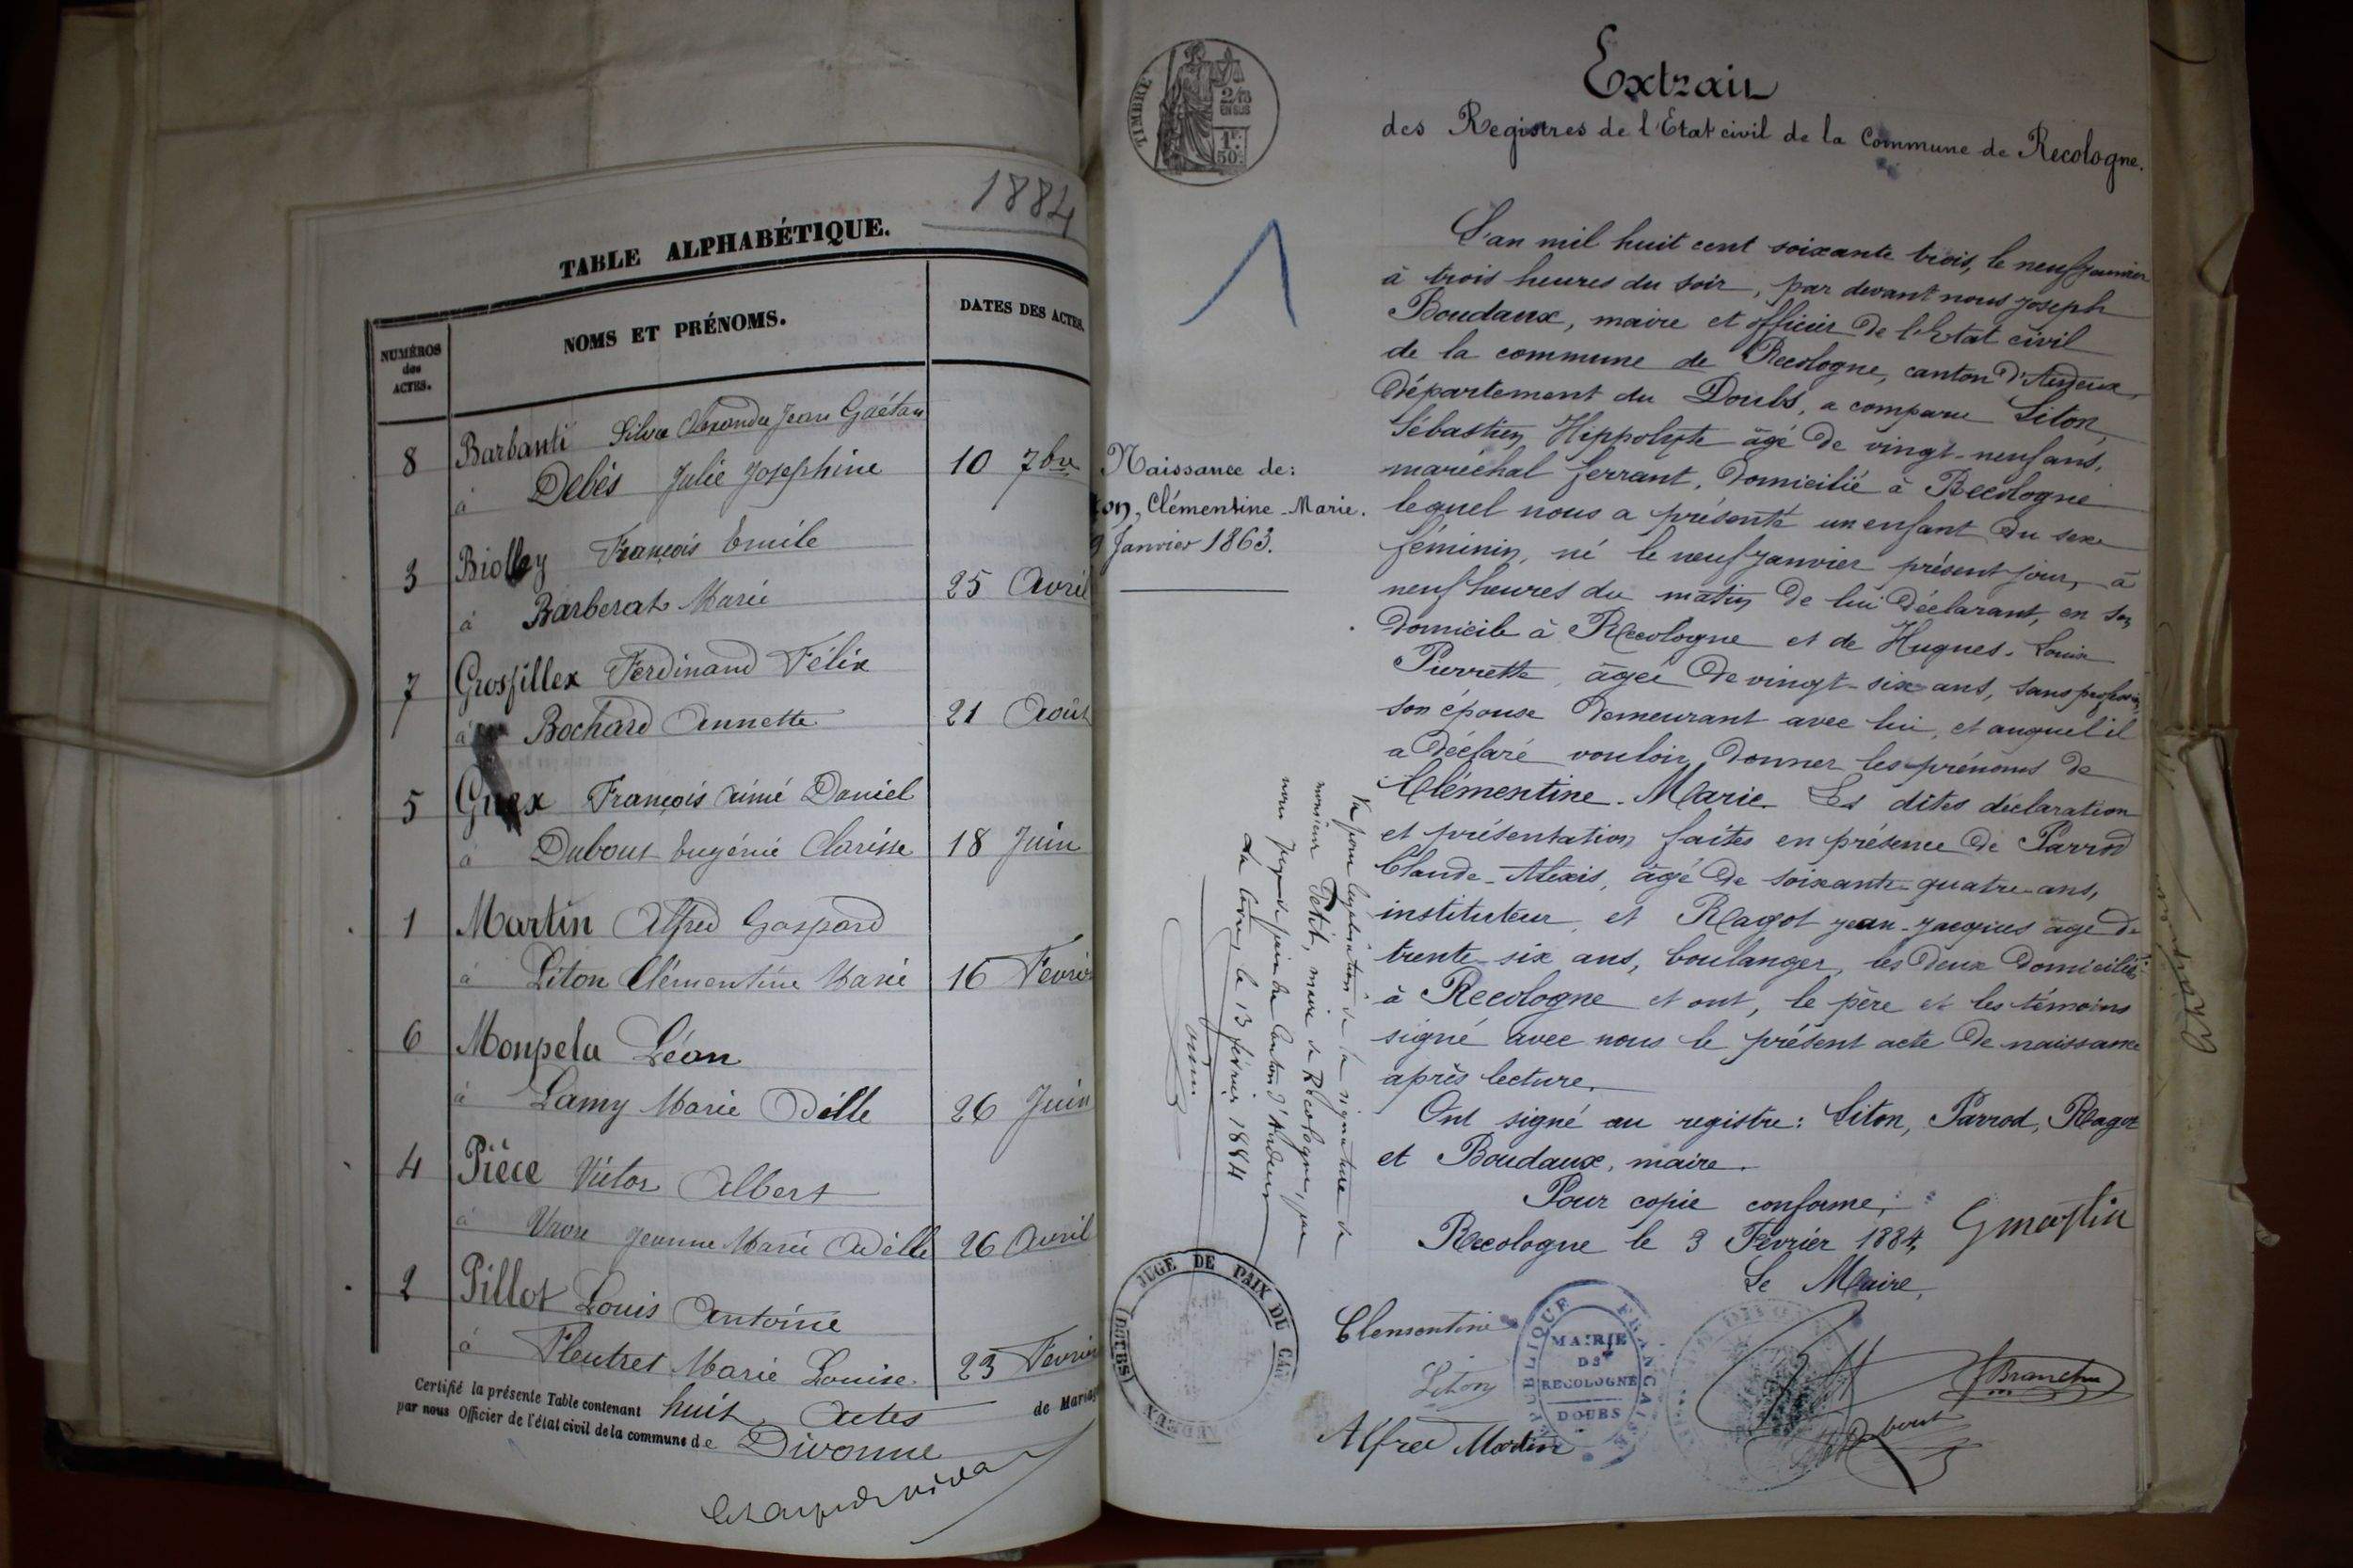 1884
TABLE ALPHABÉTIQUE.
NUMÉROS des ACTES.
NOMS ET PRÉNOMS.
DATES DES ACTES.
8 Barbanti Silva Alexandre Jean Gaëtan
à Debès Julie Josephine 10 7bre
3 Biolley François Emile
à Barberat Marie 25 Avril
7 Grosfillex Ferdinand Félix
à Bochard Annette 21 Août
5 Guex François Aimé Daniel
à Dubout Eugénie Clarisse 18 Juin
1 Martin Alfred Gaspard
à Liton Clémentine Marie 16 Fevrier
6 Monpela Léon
à Lamy Marie Odille 26 Juin
4 Pièce Victor Albert
à Jeanne Marie Adèlle 26 Avril
2 Pillot Louis Antoine
à Fleutret Marie Louise 23 Fevrier
Certifié la présente Table contenant huit Actes de Mariage
par nous Officier de l'état civil de la commune de Divonne
TIMBRE
2/10 EN SUS
1F. 50c.
Extrait
des Registres de l'Etat civil de la Commune de Recologne.
Naissance de:
ton, Clémentine-Marie.
9 Janvier 1863.
L'an mil huit cent soixante trois, le neuf janvier
à trois heures du soir, par devant nous Joseph
Boudaux, maire et officier de l'Etat civil
de la commune de Recologne, canton d'Audeux,
département du Doubs, a comparu Liton,
Sébastien, Hippolyte âgé de vingt-neuf ans,
maréchal ferrant, domicilié à Recologne
lequel nous a présenté un enfant du sexe
féminin, né le neuf janvier présent jour, à
neuf heures du matin de lui déclarant, en son
domicile à Recologne et de Hugues, Louise
Pierrette, âgée de vingt-six ans, sans profession,
son épouse demeurant avec lui, et auquel il
a déclaré vouloir donner les prénoms de
Clémentine-Marie. Les dites déclaration
et présentation faites en présence de Parrod
Claude-Alexis, âgé de soixante-quatre ans,
instituteur, et Ragot Jean-Jacques âgé de
trente-six ans, boulanger, les deux domiciliés
à Recologne et ont, le père et les témoins
signé avec nous le présent acte de naissance
après lecture.
Ont signé au registre: Liton, Parrod, Ragot
et Boudaux, maire.
Pour copie conforme,
Recologne le 3 Février 1884, G martin
Le Maire,
Vu pour légalisation de la signature de
monsieur Petit, maire de Recologne, par
nous Juge de paix du canton d'Audeux
le 13 février 1884
JUGE DE PAIX DU CANTON
AUDEUX
(DOUBS)
Clementine
Liton
Alfred Martin
RÉPUBLIQUE FRANÇAISE
MAIRIE
DE
RECOLOGNE
DOUBS
Branchu
Dubout